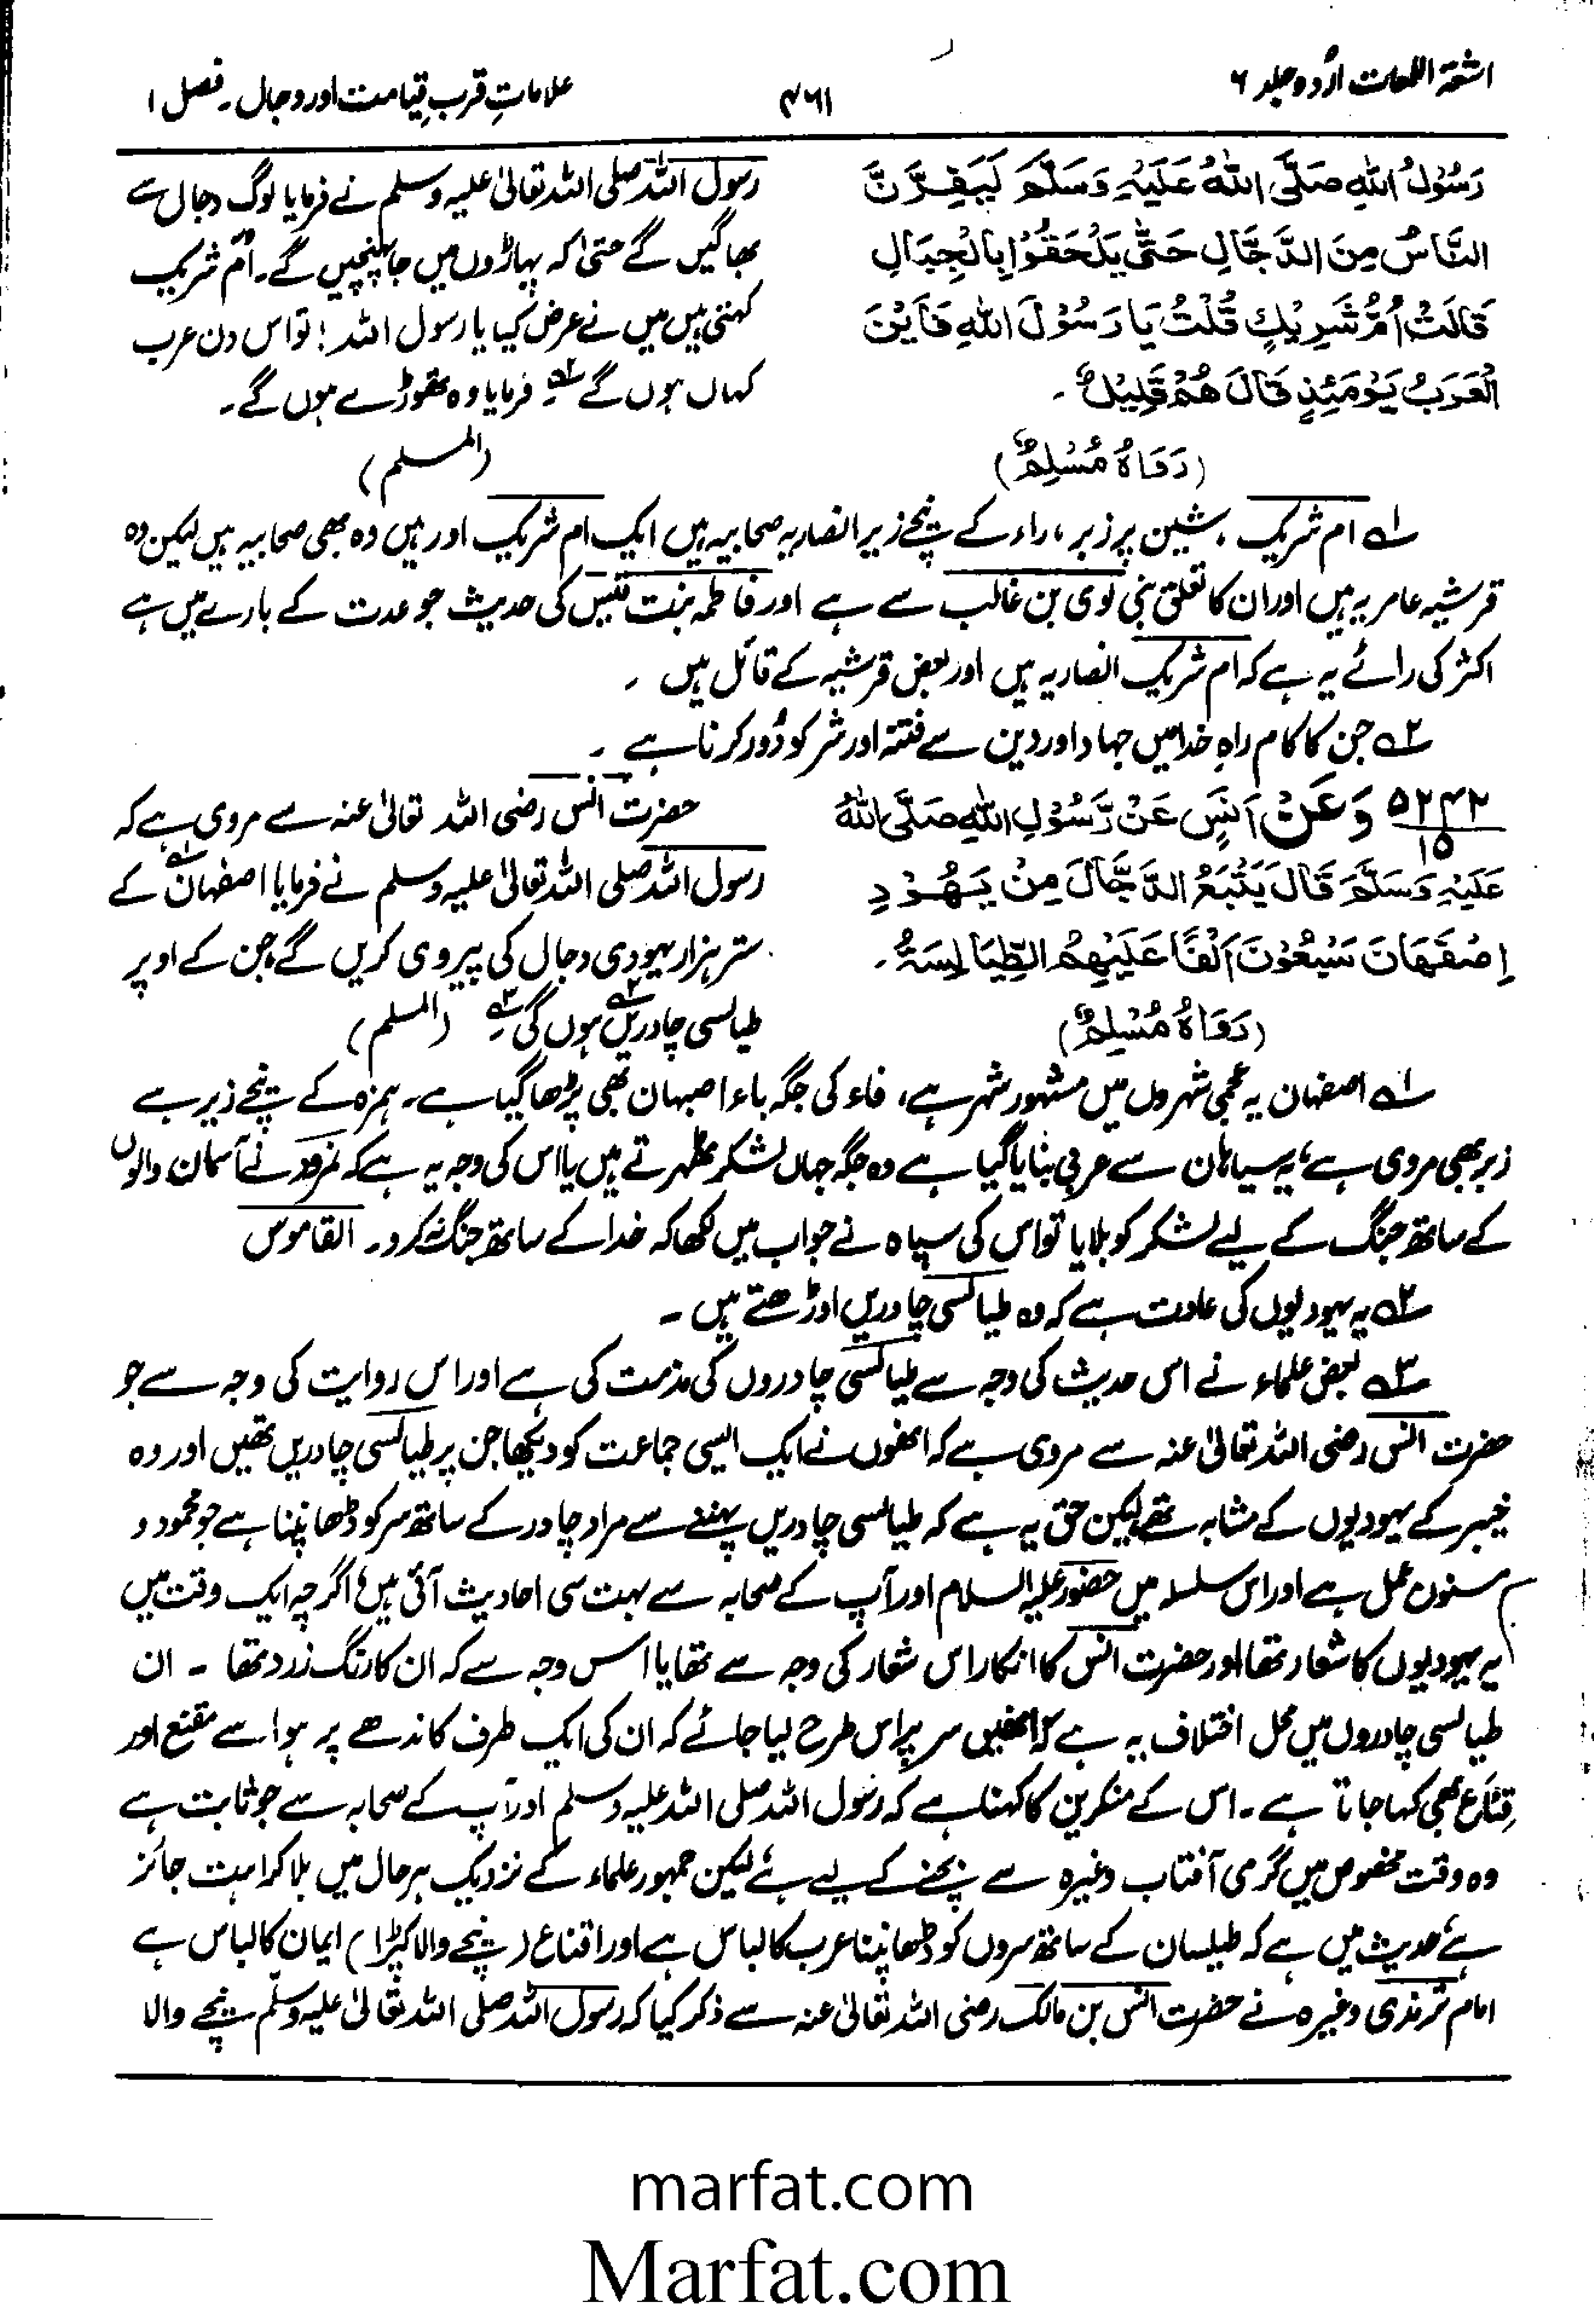 اشعۃ اللمعات اردو جلد ۶
۴۶۱
علاماتِ قربِ قیامت اور دجال۔ فصل ۱
رَسُوْلُ اللّٰهِ صَلَّى اللّٰهُ عَلَيْهِ وَسَلَّمَ لَيَفِرَّنَّ
النَّاسُ مِنَ الدَّجَّالِ حَتّٰى يَلْحَقُوْا بِالْجِبَالِ
قَالَتْ اُمُّ شَرِيْكٍ قُلْتُ يَا رَسُوْلَ اللّٰهِ فَاَيْنَ
الْعَرَبُ يَوْمَئِذٍ قَالَ هُمْ قَلِيْلٌ۔
(رَوَاهُ مُسْلِمٌ)
رسول اللہ صلی اللہ تعالیٰ علیہ وسلم نے فرمایا لوگ دجال سے
بھاگیں گے حتیٰ کہ پہاڑوں میں جا پہنچیں گے۔ اُم شریک
کہتی ہیں میں نے عرض کیا یا رسول اللہ! تو اس دن عرب
کہاں ہوں گے ۲؎ فرمایا وہ تھوڑے ہوں گے۔
(المسلم)
۱؎ ام شریک، شین پر زبر، راء کے نیچے زیر انصاریہ صحابیہ ہیں ایک ام شریک اور ہیں وہ بھی صحابیہ ہیں لیکن وہ
قرشیہ عامریہ ہیں اور ان کا تعلق بنی لوی بن غالب سے ہے اور فاطمہ بنت قیس کی حدیث جو عدت کے بارے میں ہے
اکثر کی رائے یہ ہے کہ ام شریک انصاریہ ہیں اور بعض قرشیہ کے قائل ہیں۔
۲؎ جن کا کام راہِ خدا میں جہاد اور دین سے فتنہ اور شر کو دُور کرنا ہے۔
۵۲۴۲/۱۵ وَعَنْ اَنَسٍ عَنْ رَّسُوْلِ اللّٰهِ صَلَّى اللّٰهُ
عَلَيْهِ وَسَلَّمَ قَالَ يَتْبَعُ الدَّجَّالَ مِنْ يَهُوْدِ
اِصْفَهَانَ سَبْعُوْنَ اَلْفًا عَلَيْهِمُ الطِّيَالِسَةُ۔
(رَوَاهُ مُسْلِمٌ)
حضرت انس رضی اللہ تعالیٰ عنہ سے مروی ہے کہ
رسول اللہ صلی اللہ تعالیٰ علیہ وسلم نے فرمایا اصفہان ۱؎ کے
ستر ہزار یہودی دجال کی پیروی کریں گے، جن کے اوپر
طیالسی چادریں ۲؎ ہوں گی ۳؎۔ (المسلم)
۱؎ اصفہان یہ عجمی شہروں میں مشہور شہر ہے، فاء کی جگہ باء اصبہان بھی پڑھا گیا ہے۔ ہمزہ کے نیچے زیر ہے
زبر بھی مروی ہے، یہ سپاہان سے عربی بنایا گیا ہے وہ جگہ جہاں لشکر ٹھہرتے ہیں یا اس کی وجہ یہ ہے کہ نمرود نے آسمان والوں
کے ساتھ جنگ کے لیے لشکر کو بلایا تو اس کی سپاہ نے جواب میں لکھا کہ خدا کے ساتھ جنگ نہ کرو۔ القاموس
۲؎ یہ یہودیوں کی عادت ہے کہ وہ طیالسی چادریں اوڑھتے ہیں۔
۳؎ بعض علماء نے اس حدیث کی وجہ سے طیالسی چادروں کی مذمت کی ہے اور اس روایت کی وجہ سے جو
حضرت انس رضی اللہ تعالیٰ عنہ سے مروی ہے کہ انھوں نے ایک ایسی جماعت کو دیکھا جن پر طیالسی چادریں تھیں اور وہ
خیبر کے یہودیوں کے مشابہ تھے لیکن حق یہ ہے کہ طیالسی چادریں پہننے سے مراد چادر کے ساتھ سر کو ڈھانپنا ہے جو محمود و
مسنون عمل ہے اور اس سلسلہ میں حضور علیہ السلام اور آپ کے صحابہ سے بہت سی احادیث آئی ہیں، اگرچہ ایک وقت میں
یہ یہودیوں کا شعار تھا اور حضرت انس کا انکار اس شعار کی وجہ سے تھا یا اس وجہ سے کہ ان کا رنگ زرد تھا۔ ان
طیالسی چادروں میں محل اختلاف یہ ہے کہ انھیں سر پر اس طرح لیا جائے کہ ان کی ایک طرف کاندھے پر ہو اسے مقنع اور
قِنَاع بھی کہا جاتا ہے۔ اس کے منکرین کا کہنا ہے کہ رسول اللہ صلی اللہ علیہ وسلم اور آپ کے صحابہ سے جو ثابت ہے
وہ وقت مخصوص میں گرمی آفتاب وغیرہ سے بچنے کے لیے ہے لیکن جمہور علماء کے نزدیک ہر حال میں بلا کراہت جائز
ہے، حدیث میں ہے کہ طیلسان کے ساتھ سروں کو ڈھانپنا عرب کا لباس ہے اور اقناع (نیچے والا کپڑا) ایمان کا لباس ہے
امام ترمذی وغیرہ نے حضرت انس بن مالک رضی اللہ تعالیٰ عنہ سے ذکر کیا کہ رسول اللہ صلی اللہ تعالیٰ علیہ وسلم نیچے والا
marfat.com
Marfat.com